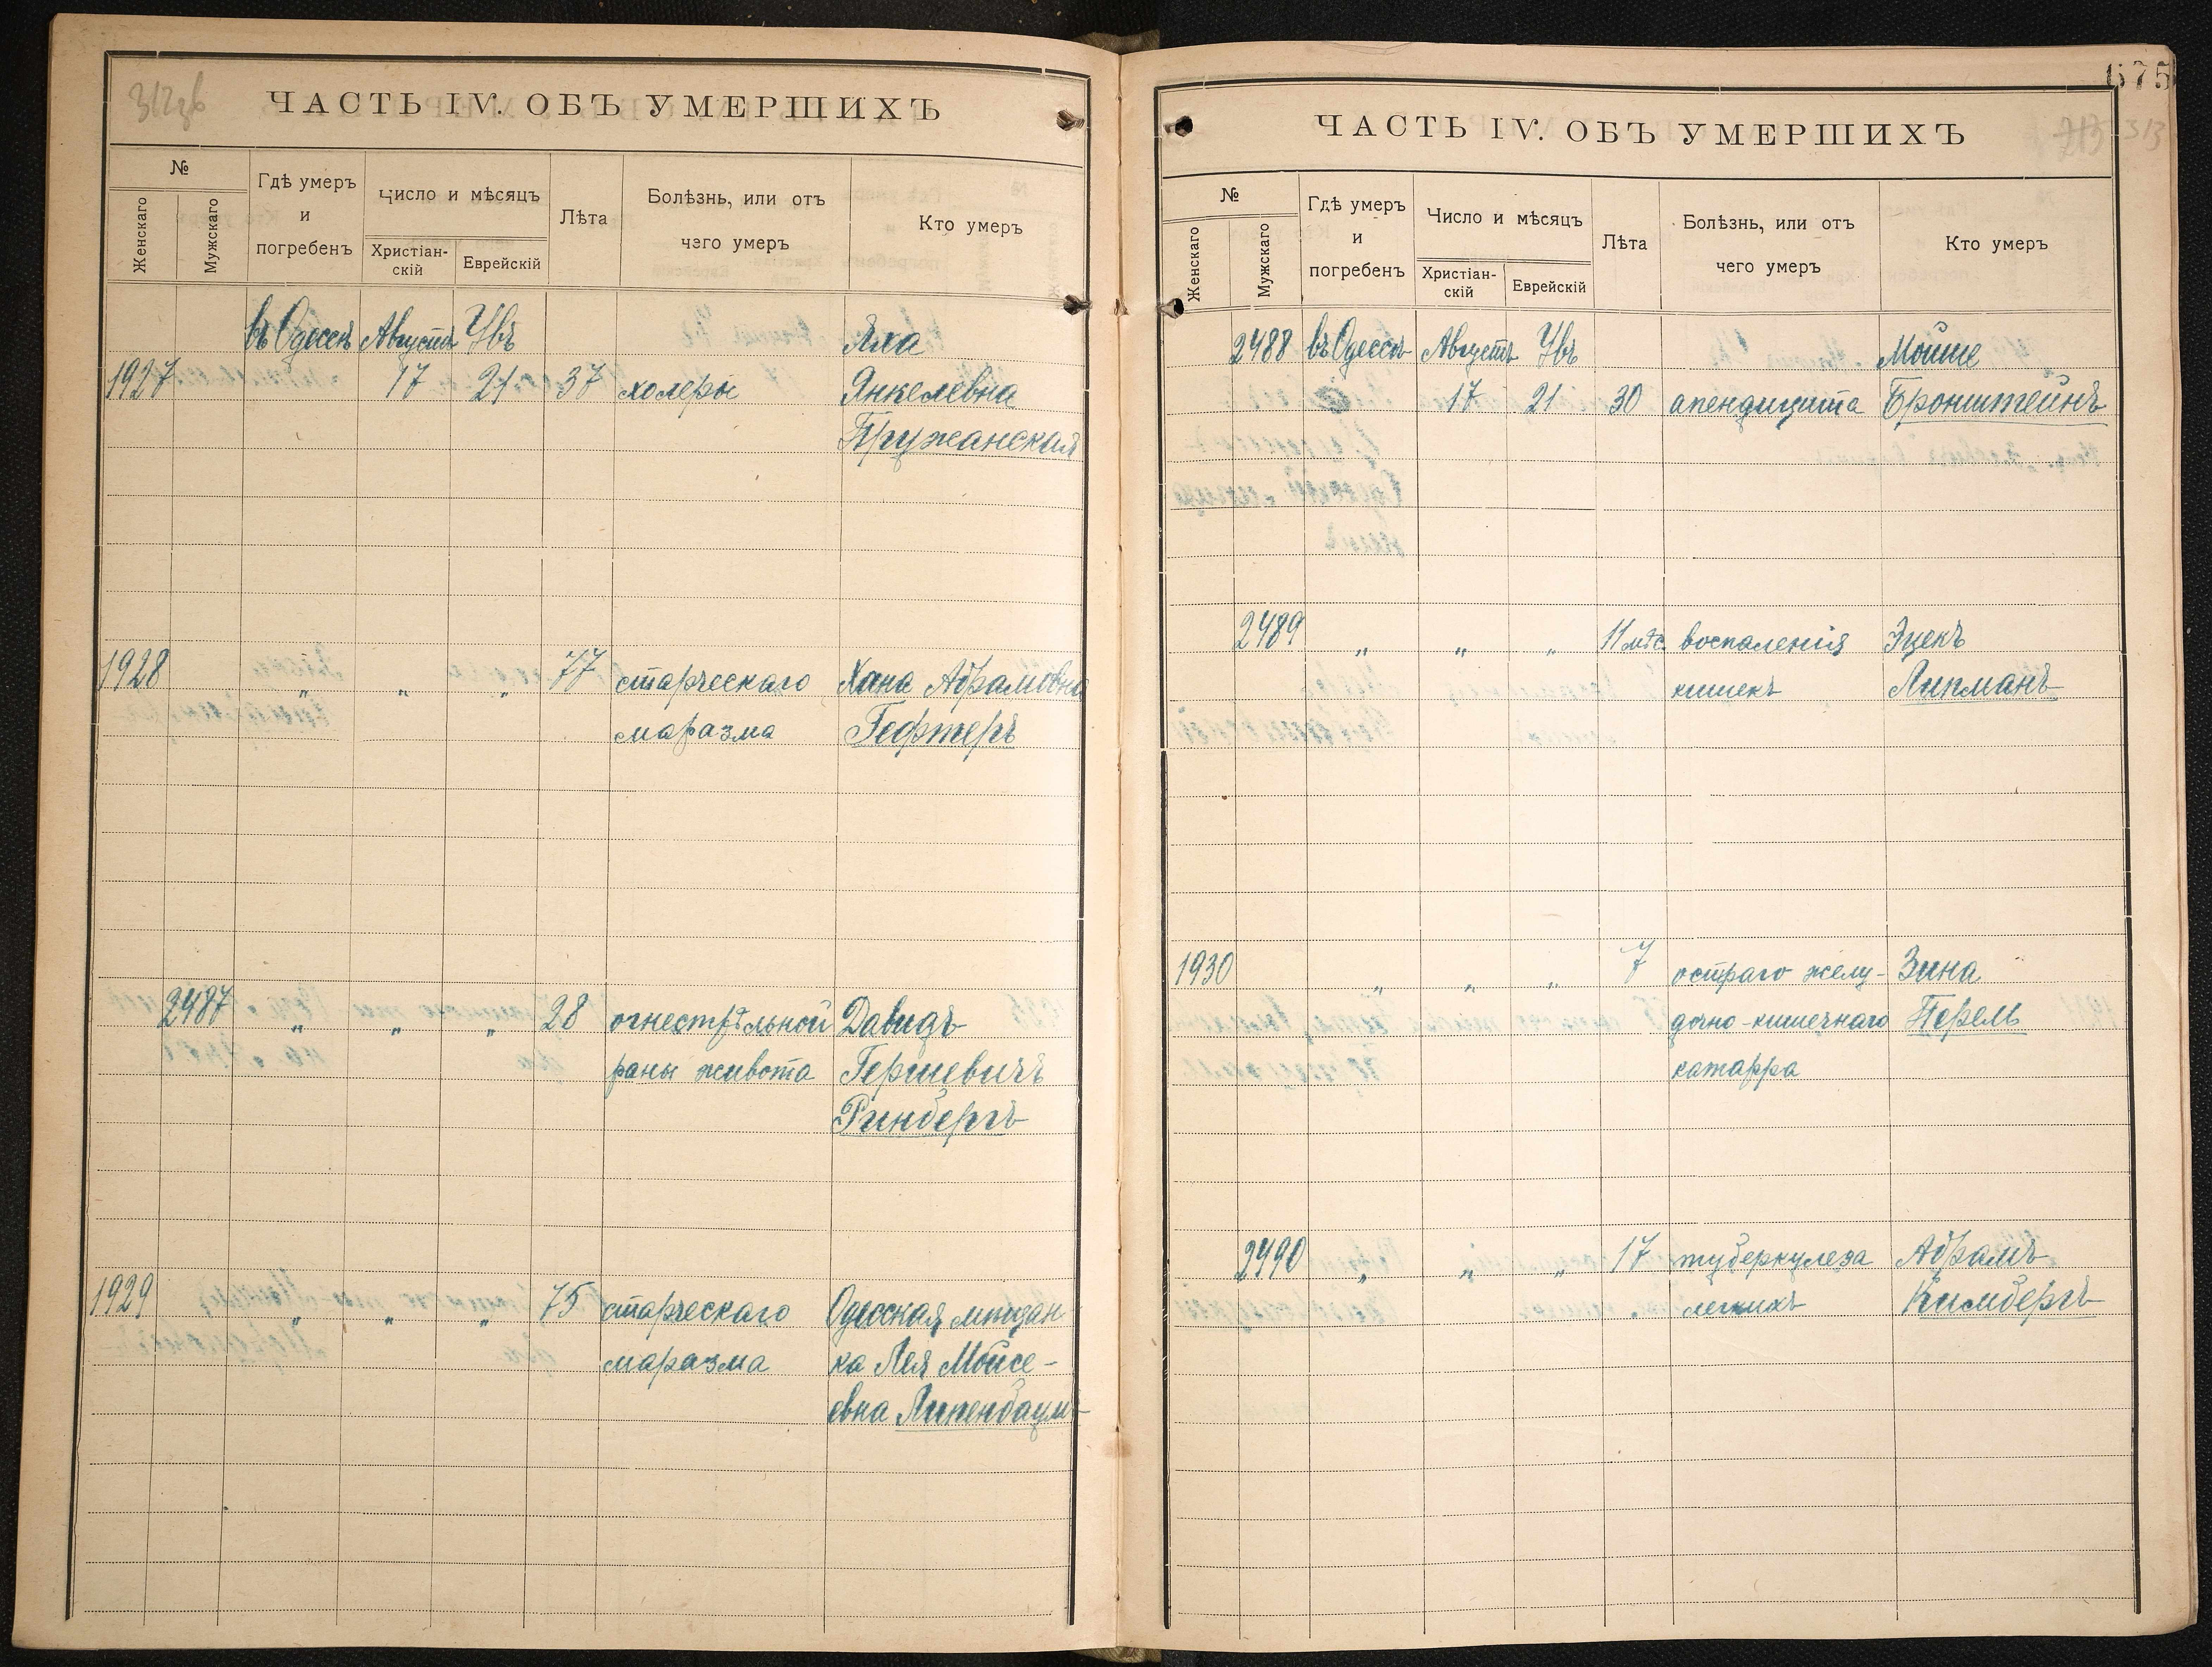 312 зв
ЧАСТЬ IV. ОБЪ УМЕРШИХЪ
№
Женскаго
Мужскаго
Гдѣ умеръ
и
погребенъ
Число и мѣсяцъ
Христіан-
скій
Еврейскій
Лѣта
Болѣзнь, или отъ
чего умеръ
Кто умеръ
въ Одессѣ Августъ Увъ Яха
1927 17 21 37 холеры Янкелевна
Пружанская
1928 „ „ „ 77 старческаго Хана Абрамовна
маразма Гефтеръ
2487 „ „ „ 28 огнестрѣльной Давидъ
раны живота Гершевичъ
Ринбергъ
1929 „ „ „ 75 старческаго Одесская мѣщан
маразма ка Лея Мойсе-
евна Липенбаумъ
575
313
ЧАСТЬ IV. ОБЪ УМЕРШИХЪ
№
Женскаго
Мужскаго
Гдѣ умеръ
и
погребенъ
Число и мѣсяцъ
Христіан-
скій
Еврейскій
Лѣта
Болѣзнь, или отъ
чего умеръ
Кто умеръ
2488 въ Одессѣ Августъ Увъ Мойше
17 21 30 апендицита Бронштейнъ
2489 „ „ „ 11 мѣс. воспаленія Эцекъ
кишекъ Липманъ
1930 „ „ „ 7 остраго желу- Зина
дочно-кишечнаго Перель
катарра
2490 „ „ „ 17 туберкулеза Абрамъ
легкихъ Кимбергъ